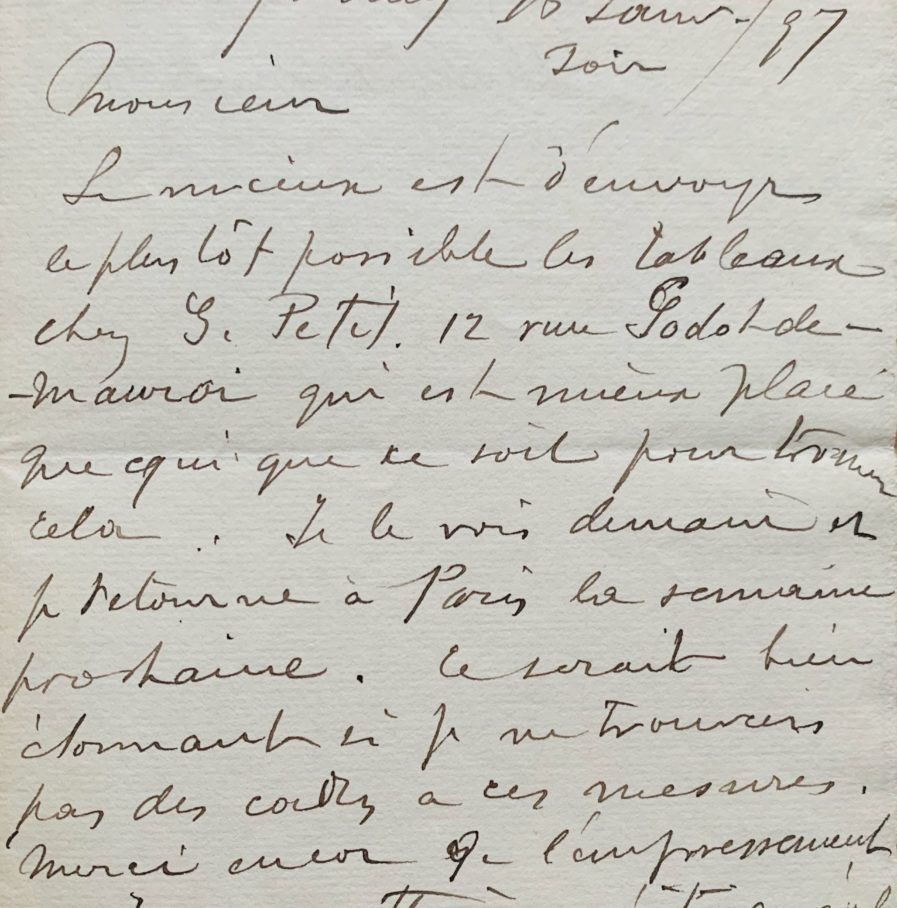 Janv. / 97
Soir
Monsieur
Le mieux est d'envoyer
le plus tôt possible les tableaux
chez G. Petit. 12 rue Godot-de-
-Mauroi qui est mieux placé
que qui que ce soit pour trouver
cela. Je le vois demain et
je retourne à Paris la semaine
prochaine. Ce serait bien
étonnant si je ne trouvais
pas des cadres a ces mesures.
Merci encor de l'empressement